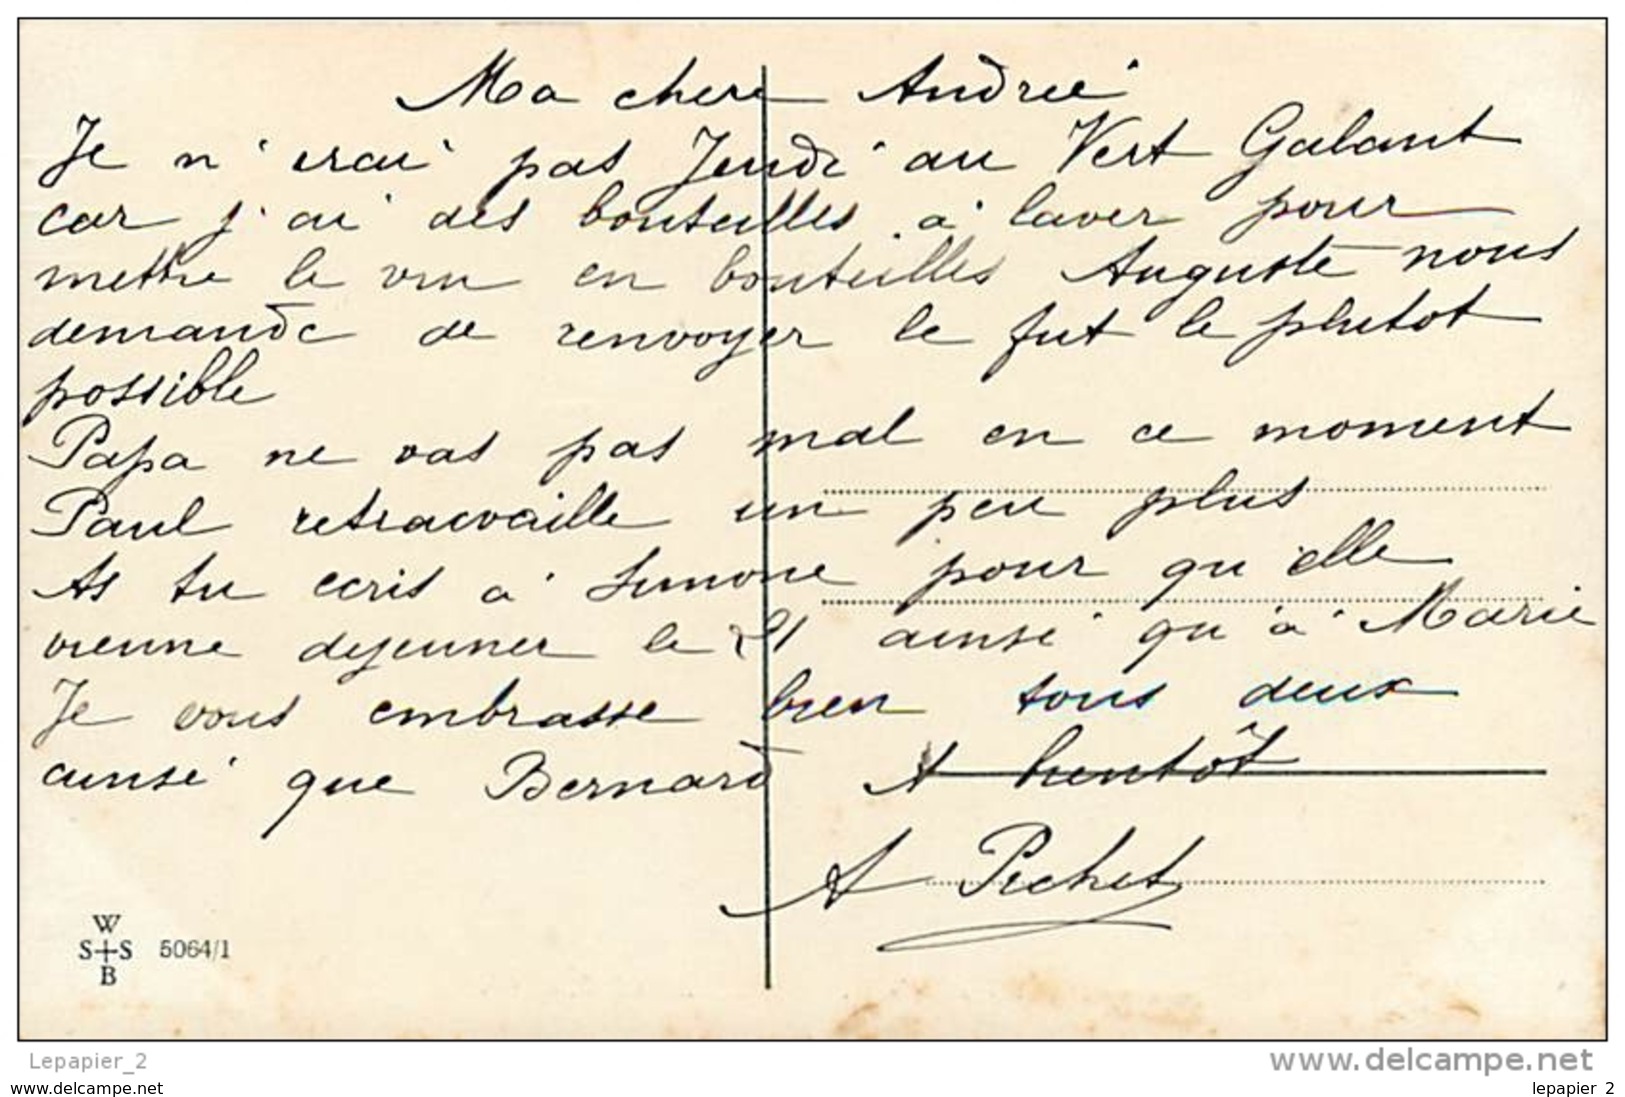 Ma chere Andreé
Je n'irai pas Jeudi au Vert Galant
car j'ai des bouteilles à laver pour
mettre le vin en bouteilles Auguste nous
demande de renvoyer le fut le plutot
possible
Papa ne vas pas mal en ce moment
Paul retravaille un peu plus
As tu ecris à Simone pour qu'elle
vienne dejeuner le 21 ainsi qu'à Marie
Je vous embrasse bien tous deux
ainsi que Bernard A bientôt
A Pichet
W
S+S 5064/1
B
Lepapier_2
www.delcampe.net
www.delcampe.net
lepapier_2